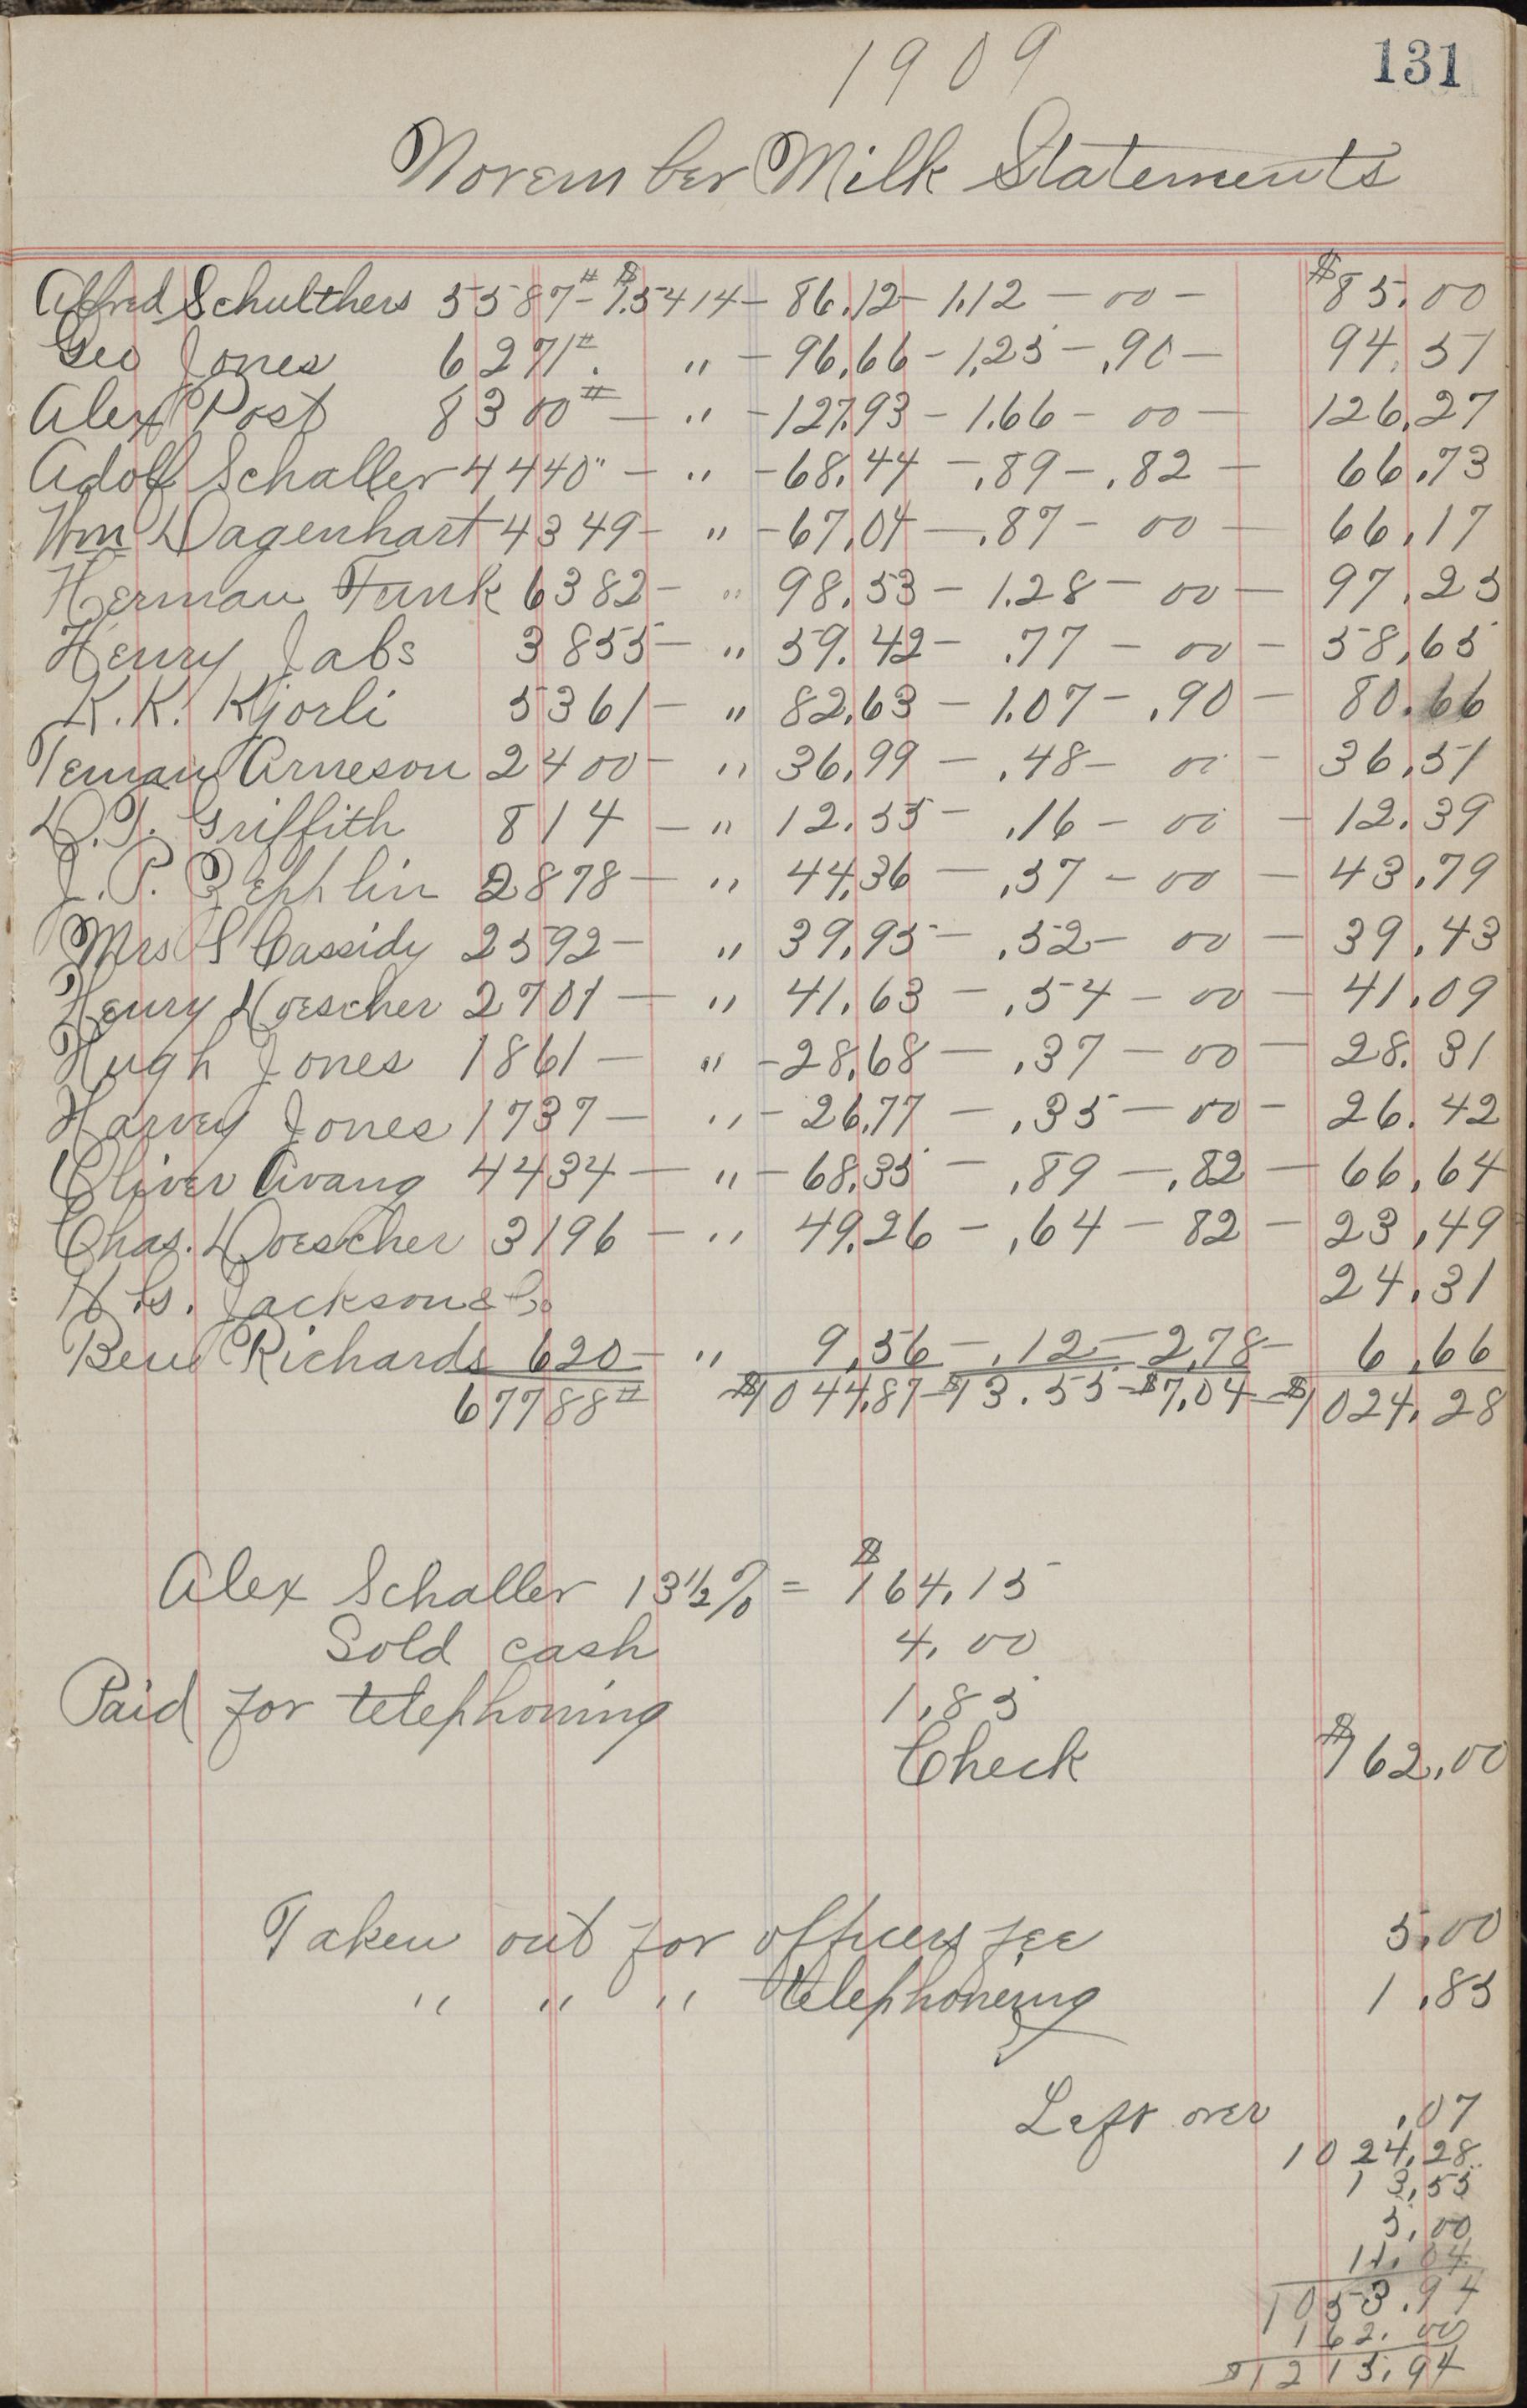 1909
131
November Milk Statements
Alfred Schulthers 5587# - $1.5414 - 86.12 - 1.12 - 00 - $85.00
Geo Jones 6271#. " - 96.66 - 1.25 - .90 - 94.51
Alex Post 8300# - " - 127.93 - 1.66 - 00 - 126.27
Adolf Schaller 4440" - " - 68.44 - .89 - .82 - 66.73
Wm Dagenhart 4349 - " - 67.04 - .87 - 00 - 66.17
Herman Funk 6382 - " 98.53 - 1.28 - 00 - 97.25
Henry Jabs 3855 - " 59.42 - .77 - 00 - 58.65
K.K. Kjorli 5361 - " 82.63 - 1.07 - .90 - 80.66
Teman Arneson 2400 - " 36.99 - .48 - 00 - 36.51
D.T. Griffith 814 - " 12.55 - .16 - 00 - 12.39
J.P. Zephlin 2878 - " 44.36 - .57 - 00 - 43.79
Mrs S Cassidy 2592 - " 39.95 - .52 - 00 - 39.43
Henry Doescher 2701 - " 41.63 - .54 - 00 - 41.09
Hugh Jones 1861 - " - 28.68 - .37 - 00 - 28.31
Harvey Jones 1737 - " - 26.77 - .35 - 00 - 26.42
Oliver Avang 4434 - " - 68.35 - .89 - .82 - 66.64
Chas. Doescher 3196 - " 49.26 - .64 - 82 - 23.49
Jackson & Co 24.31
Benu Richards 620 - " 9.56 - .12 - 2.78 - 6.66
67788# $1044.87 - $13.55 - $7.04 - $1024.28
Alex Schaller 13 1/2 % = $164.15
Sold cash 4.00
Paid for telephoning 1.85
Check $162.00
Taken out for officers fee 5.00
" " " telephoneing 1.85
Left over .07
1024.28
13.55
5.00
11.04
1053.94
162.00
$1215.94